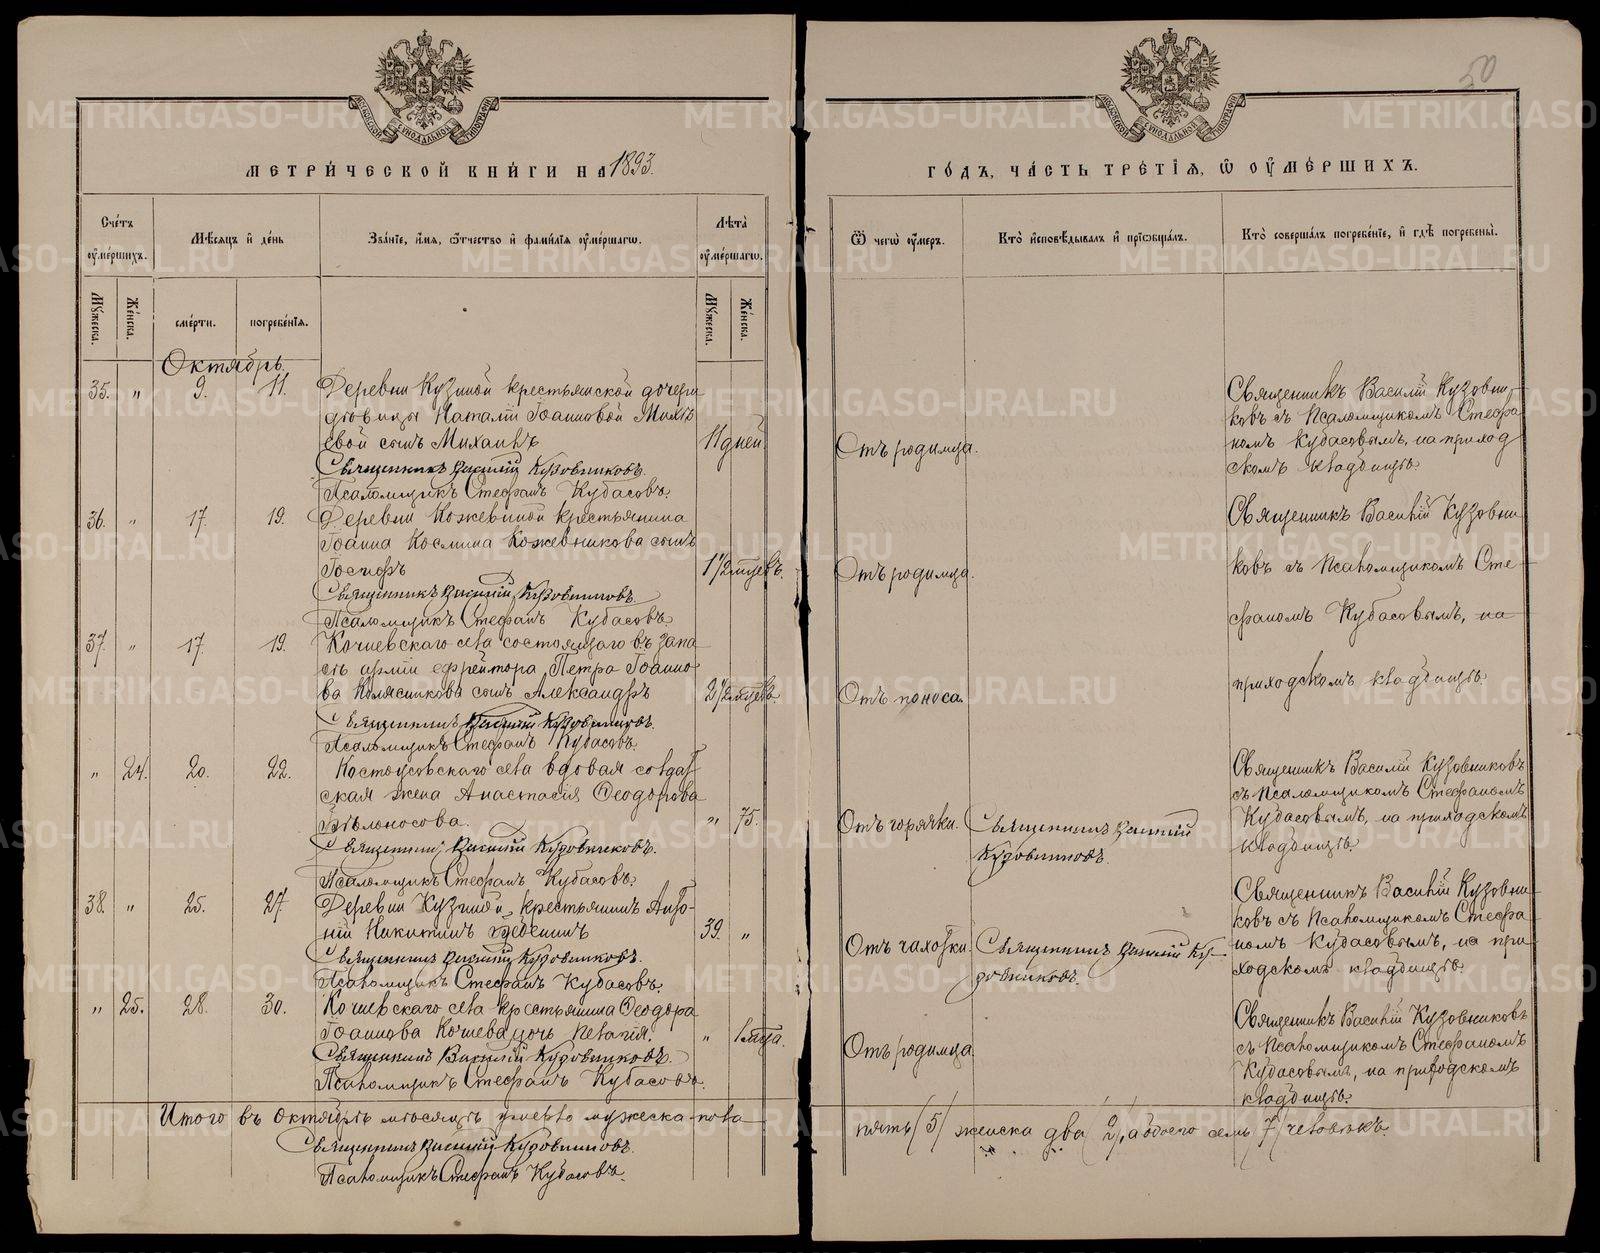 50
МЕТРИ́ЧЕСКОЙ КНИ́ГИ НА 1893.
ГО́ДЪ, ЧА́СТЬ ТРЕ́ТІЯ, Ѡ ОУМЕ́РШИХЪ.
Сче́тъ оумершихъ.
Мѣсяцъ и҆ де́нь
Зва́ніе, и҆́мя, ѻ҆́тчество и҆ фами́лія оуме́ршагѡ.
Лѣ́та оуме́ршагѡ.
Ѿ чегѡ̀ оу́меръ.
Кто̀ и҆сповѣ́дывалъ и҆ прїѡбща́лъ.
Кто̀ соверша́лъ погребе́ніе, и҆ гдѣ̀ погребены̀.
Мꙋ́жеска.
Же́нска.
сме́рти.
погребе́нїя.
Мꙋ́жеска.
Же́нска.
Октябрь.
35. „ 9. 11. Деревни Кузиной крестьянской дочери
дѣвицы Наталіи Іоанновой
евой сынъ Михаилъ 11 дней.
Священникъ Василій Кузовниковъ.
Псаломщикъ Стефанъ Кубасовъ.
Отъ родимца.
Священникъ Василій Кузовни-
ковъ съ Псаломщикомъ Стефа
номъ Кубасовымъ, на приход
скомъ кладбищѣ.
36. „ 17. 19. Деревни Кожевиной крестьянина
Іоанна Космина Кожевникова сынъ
Іосифъ 1 1/2 мцевъ.
Священникъ Василій Кузовниковъ
Псаломщикъ Стефанъ Кубасовъ.
Отъ родимца.
Священникъ Василій Кузовни
ковъ съ Псаломщикомъ Сте-
фаномъ Кубасовымъ, на
приходскомъ кладбищѣ.
37. „ 17. 19. Кочневскаго села состоящаго въ запа
сѣ арміи ефрейтора Петра Іоанно
ва Колясникова сынъ Александръ 2 1/2 мцева.
Священникъ Василій Кузовниковъ.
Псаломщикъ Стефанъ Кубасовъ.
Отъ поноса.
„ 24. 20. 22. Костоусовскаго села вдовая солдат
ская жена Анастасія Ѳеодорова
Бѣлоносова. „ 75.
Священникъ Василій Кузовниковъ.
Псаломщикъ Стефанъ Кубасовъ.
Отъ горячки.
Священникъ Василій
Кузовниковъ.
Священникъ Василій Кузовниковъ
съ Псаломщикомъ Стефаномъ
Кубасовымъ, на приходскомъ
кладбищѣ.
38. „ 25. 27. Деревни Кузиной, крестьянинъ Анто
ній Никитинъ 39. „
Священникъ Василій Кузовниковъ.
Псаломщикъ Стефанъ Кубасовъ.
Отъ чахотки.
Священникъ Василій Ку-
зовниковъ.
Священникъ Василій Кузовни
ковъ съ Псаломщикомъ Стефа
номъ Кубасовымъ, на при
ходскомъ кладбищѣ.
„ 25. 28. 30. Кочневскаго села крестьянина Ѳеодора
Іоаннова Кочнева дочь Пелагія. „ 1 мца.
Священникъ Василій Кузовниковъ.
Псаломщикъ Стефанъ Кубасовъ.
Отъ родимца.
Священникъ Василій Кузовниковъ
съ Псаломщикомъ Стефаномъ
Кубасовымъ, на приходскомъ
кладбищѣ.
Итого въ Октябрѣ мѣсяцѣ умерло мужеска пола
пять /5/ женска два /2/, а обоего семь /7/ человѣкъ.
Священникъ Василій Кузовниковъ.
Псаломщикъ Стефанъ Кубасовъ.